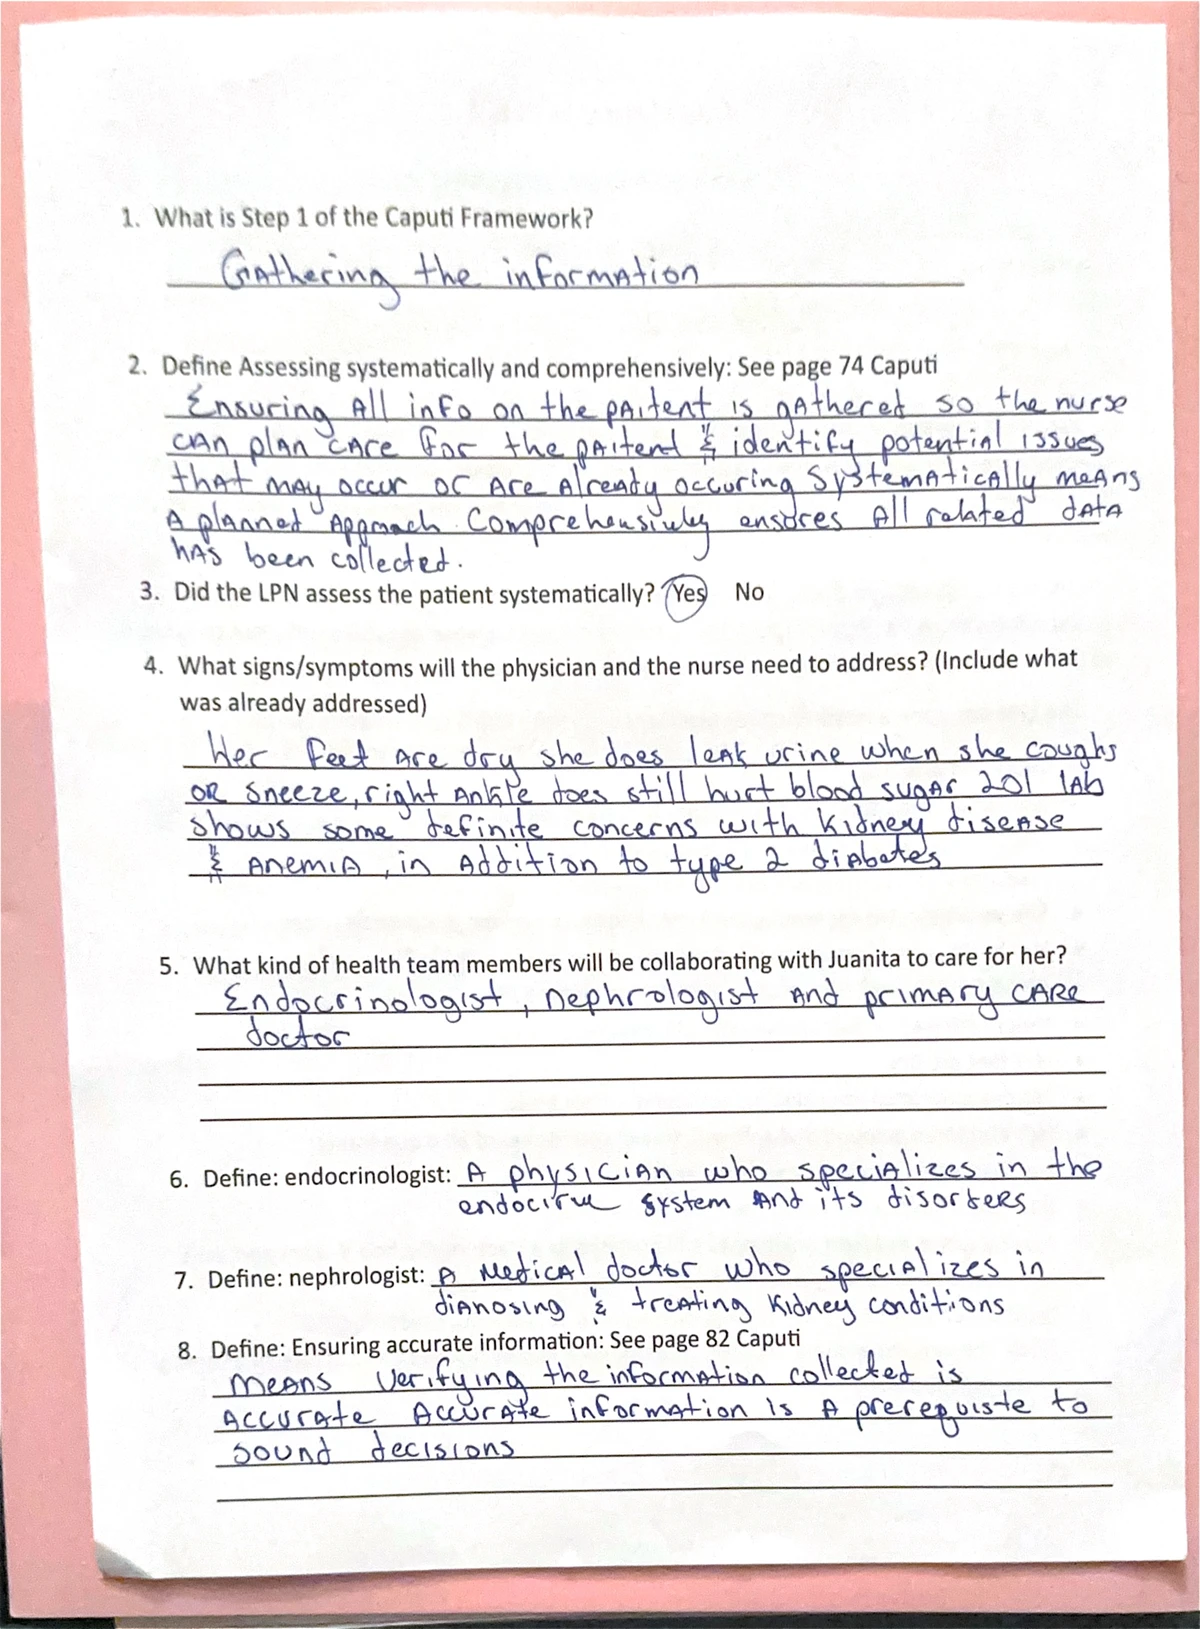 1. What is Step 1 of the Caputi Framework?
Gathering the information
2. Define Assessing systematically and comprehensively: See page 74 Caputi
Ensuring All info on the pAitent is gAthered so the nurse
cAn plAn cAre for the pAitend & identify potentiAl issues
thAt mAy occur or Are AlreAdy occuring SystemAticAlly meAns
A plAnned ApproAch. Comprehensivly ensures All related dAtA
hAs been collected.
3. Did the LPN assess the patient systematically? Yes No
4. What signs/symptoms will the physician and the nurse need to address? (Include what
was already addressed)
Her feet Are dry she does leAk urine when she coughs
OR sneeze, right Ankle does still hurt blood sugAr 201 lAb
shows some definite concerns with kidney diseAse
& AnemiA, in Addition to type 2 diAbetes
5. What kind of health team members will be collaborating with Juanita to care for her?
Endocrinologist, nephrologist And primAry cAre
doctor
6. Define: endocrinologist: A physiciAn who speciAlizes in the
system And its disorders
7. Define: nephrologist: A medicAl doctor who speciAlizes in
diAnosing & treAting kidney conditions
8. Define: Ensuring accurate information: See page 82 Caputi
meAns verifying the informAtion collected is
AccurAte AccurAte informAtion is A prerequiste to
sound decisions